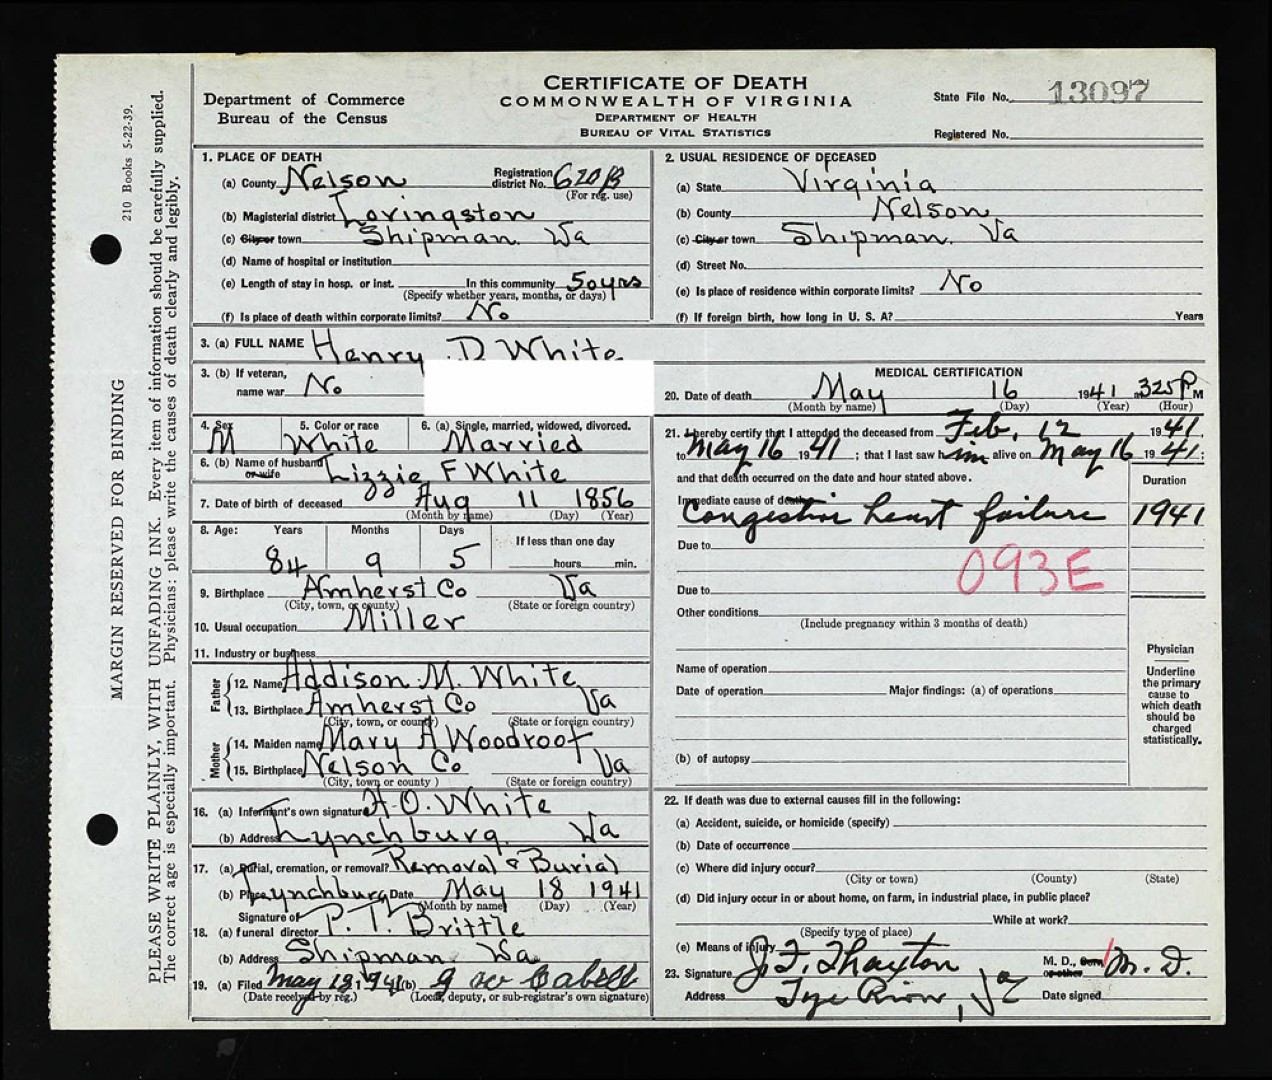 CERTIFICATE OF DEATH
COMMONWEALTH OF VIRGINIA
DEPARTMENT OF HEALTH
BUREAU OF VITAL STATISTICS
Department of Commerce
Bureau of the Census
State File No. 13097
Registered No.
210 Books 5-22-39.
MARGIN RESERVED FOR BINDING
PLEASE WRITE PLAINLY, WITH UNFADING INK. Every item of information should be carefully supplied.
The correct age is especially important. Physicians: please write the causes of death clearly and legibly.
1. PLACE OF DEATH
(a) County Nelson Registration district No. 620B
(For reg. use)
(b) Magisterial district Lovingston
(c) City or town Shipman. Va
(d) Name of hospital or institution
(e) Length of stay in hosp. or inst. In this community 50 yrs
(Specify whether years, months, or days)
(f) Is place of death within corporate limits? No
2. USUAL RESIDENCE OF DECEASED
(a) State Virginia
(b) County Nelson
(c) City or town Shipman. Va
(d) Street No.
(e) Is place of residence within corporate limits? No
(f) If foreign birth, how long in U. S. A? Years
3. (a) FULL NAME Henry D White
3. (b) If veteran,
name war No
4. Sex M
5. Color or race White
6. (a) Single, married, widowed, divorced. Married
6. (b) Name of husband or wife Lizzie F White
7. Date of birth of deceased Aug 11 1856
(Month by name) (Day) (Year)
8. Age: Years Months Days If less than one day
84 9 5 hours min.
9. Birthplace Amherst Co Va
(City, town, or county) (State or foreign country)
10. Usual occupation Miller
11. Industry or business
Father
12. Name Addison M. White
13. Birthplace Amherst Co Va
(City, town, or county) (State or foreign country)
Mother
14. Maiden name Mary A Woodroof
15. Birthplace Nelson Co Va
(City, town or county) (State or foreign country)
16. (a) Informant's own signature H. O. White
(b) Address Lynchburg Va
17. (a) Burial, cremation, or removal? Removal & Burial
(b) Place Lynchburg Date May 18 1941
(Month by name) (Day) (Year)
18. Signature of
(a) funeral director P. T. Brittle
(b) Address Shipman Va
19. (a) Filed May 1941 (b) Cabell
(Date received by reg.) (Local, deputy, or sub-registrar's own signature)
MEDICAL CERTIFICATION
20. Date of death May 16 1941 325 P M
(Month by name) (Day) (Year) (Hour)
21. I hereby certify that I attended the deceased from Feb. 12 1941
to May 16 1941; that I last saw him alive on May 16 1941;
and that death occurred on the date and hour stated above.
Duration
Immediate cause of death
Congestive heart failure 1941
Due to
093E
Due to
Other conditions
(Include pregnancy within 3 months of death)
Name of operation
Date of operation Major findings: (a) of operations
(b) of autopsy
Physician
Underline the primary cause to which death should be charged statistically.
22. If death was due to external causes fill in the following:
(a) Accident, suicide, or homicide (specify)
(b) Date of occurrence
(c) Where did injury occur?
(City or town) (County) (State)
(d) Did injury occur in or about home, on farm, in industrial place, in public place?
While at work?
(Specify type of place)
(e) Means of injury
23. Signature J. F. Thaxton M. D., or other M. D.
Address Tye River, Va Date signed